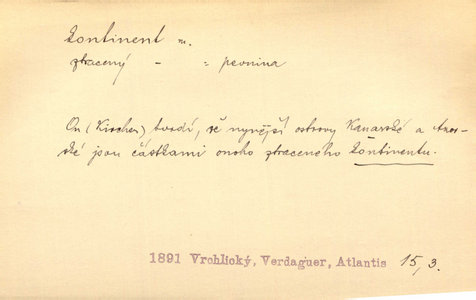 kontinent m.
ztracený - = pevnina
On (Kircher) tvrdí, že nynější ostrovy Kanarské a Azor-
ské jsou částkami onoho ztraceného kontinentu.
1891 Vrchlický, Verdaguer, Atlantis 15, 3.